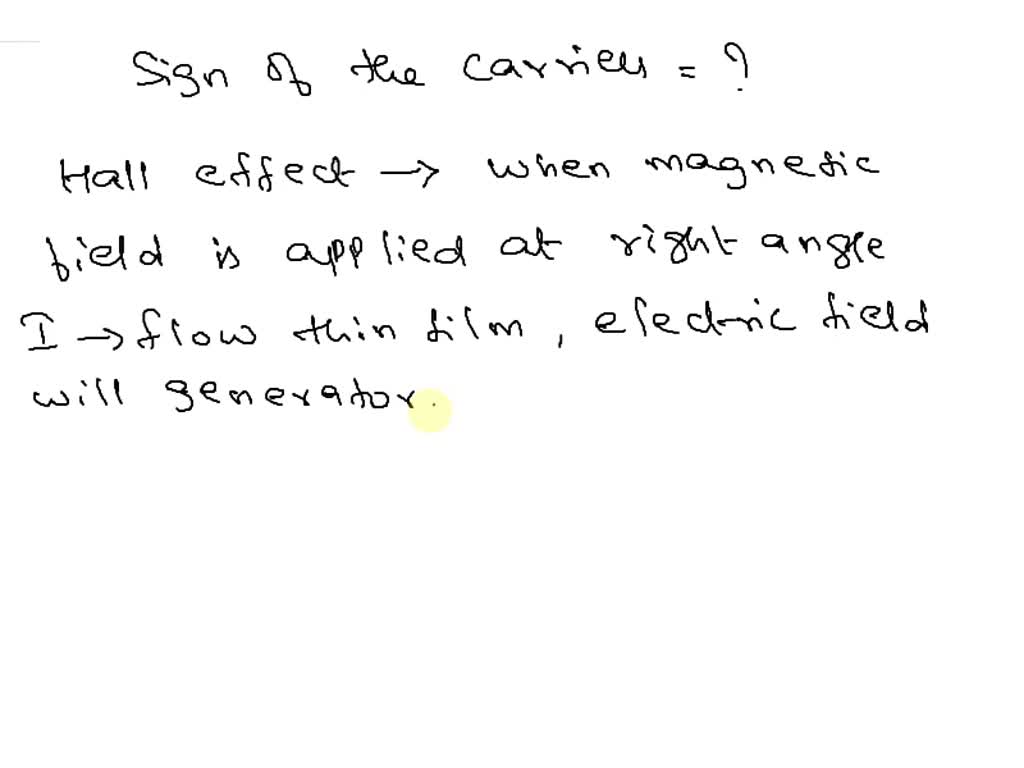 Sign of the carriers = ?
Hall effect → when magnetic
field is applied at right angle
I → flow thin film, electric field
will generator.